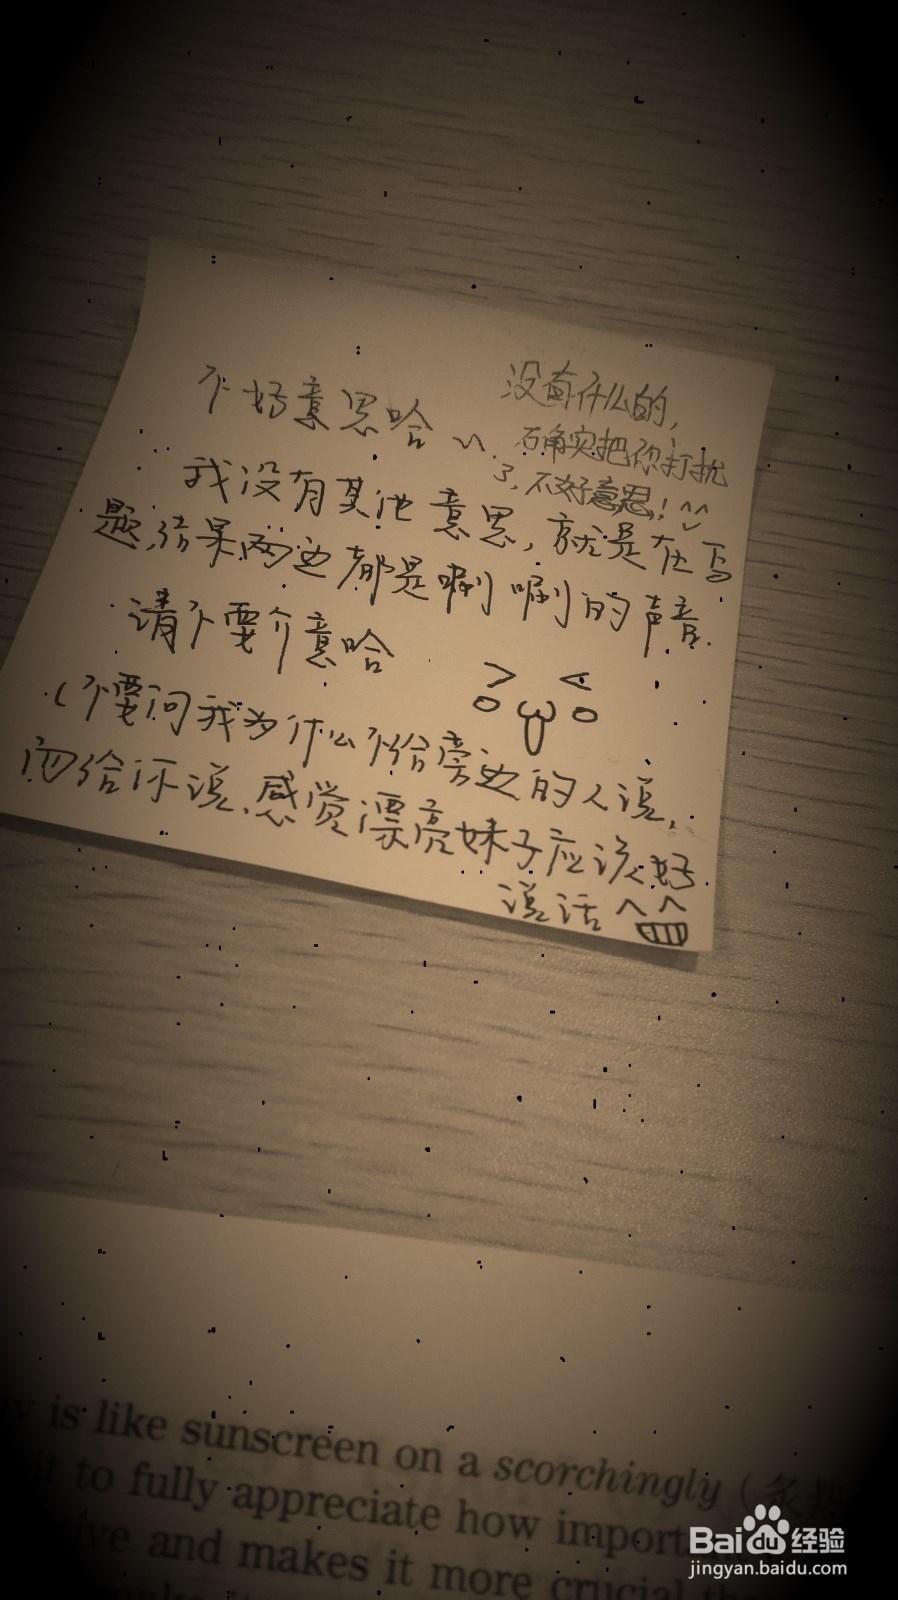 不好意思哈~
没有什么的,
确实把你打扰
了,不好意思!^^
我没有其他意思,就是在写
题,结果两边都是唰唰的声音.
请不要介意哈
(不要问我为什么不给旁边的人说,
而给你说,感觉漂亮妹子应该好
说话^^
is like sunscreen on a scorchingly (炙热
it to fully appreciate how import
tive and makes it more crucial th
Baidu经验
jingyan.baidu.com